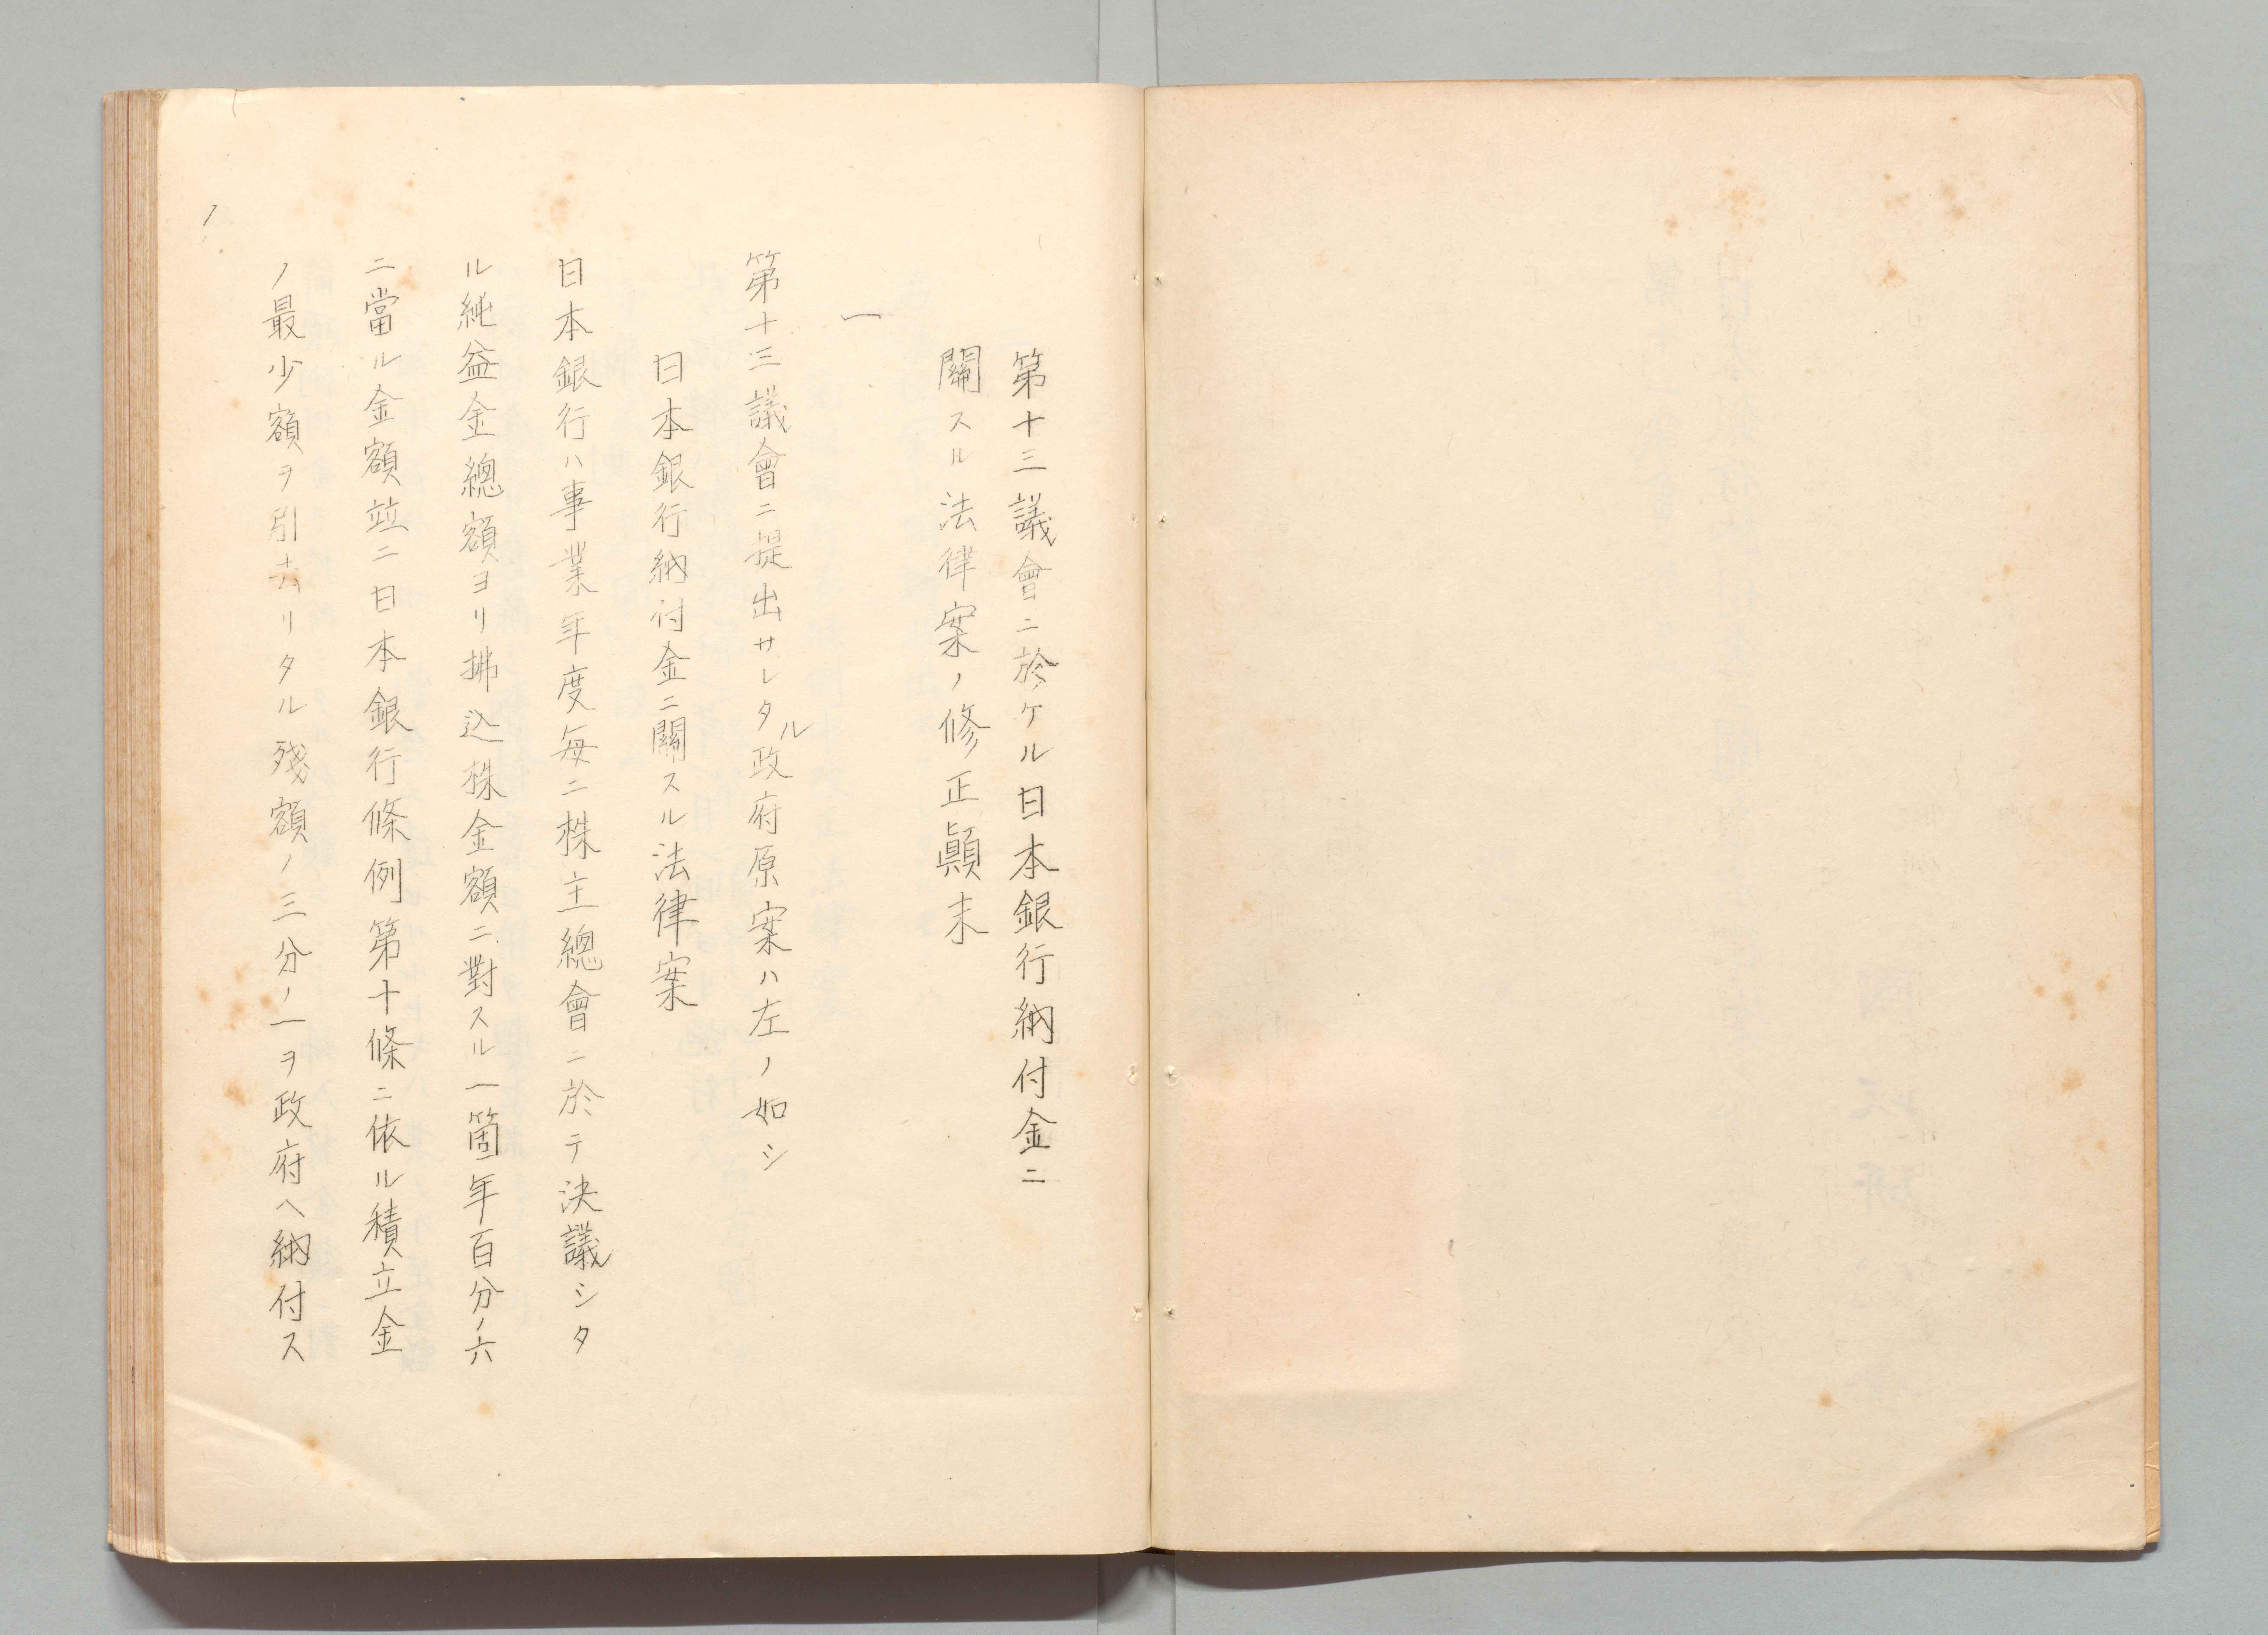 第十三議會ニ於ケル日本銀行納付金ニ
關スル法律案ノ修正顚末
一
第十三議會ニ提出サレタル政府原案ハ左ノ如シ
日本銀行納付金ニ關スル法律案
日本銀行ハ事業年度每ニ株主總會ニ於テ決議シタ
ル純益金總額ヨリ拂込株金額ニ對スル一箇年百分ノ六
ニ當ル金額竝ニ日本銀行條例第十條ニ依ル積立金
ノ最少額ヲ引去リタル殘額ノ三分ノ一ヲ政府ヘ納付ス
1